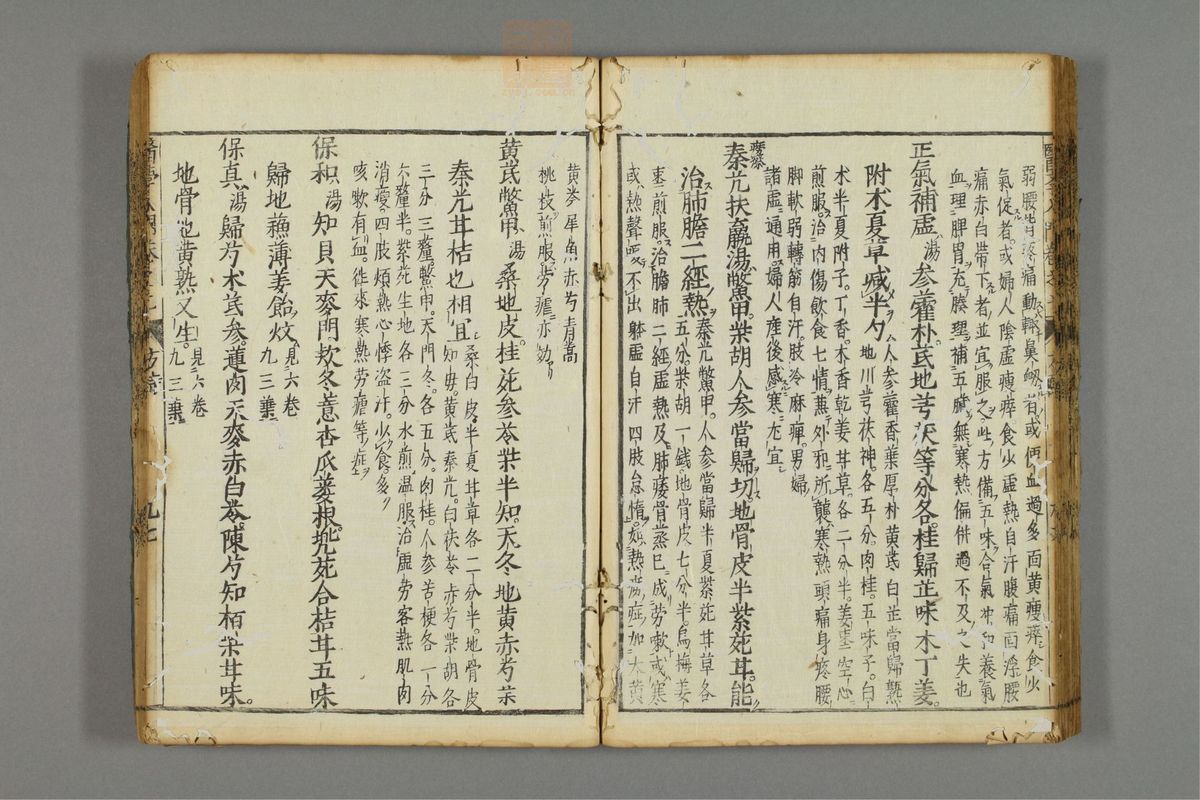 弱腰背疼痛動輒鼻衄者或便血過多面黃瘦瘁食少
氣促者或婦人陰虛瘦瘁食少虛熱自汗腹痛面浮腰
痛赤白帶下者並宜服之此方備五味合氣冲和養氣
血理脾胃充腠理補五臟無寒熱偏併過不及之失也
正氣補虛湯 參藿朴芪地芎茯等分各桂歸芷味木丁姜
附朮夏草減半勺 人參藿香葉厚朴黃芪白芷當歸熟
地川芎茯神各五分肉桂五味子白
朮半夏附子丁香木香乾姜甘草各二分半姜棗空心
煎服治內傷飲食七情蒸外邪所襲寒熱頭痛身疼腰
脚軟弱轉筋自汗肢冷麻痺男婦
諸虛通用婦人産後感寒尤宜
癆瘵
秦艽扶羸湯鱉甲柴胡人參當歸切地骨皮半紫菀甘能
治肺膽二經熱 秦艽鱉甲人參當歸半夏紫菀甘草各
五分柴胡一錢地骨皮七分半烏梅姜
棗煎服治膽肺二經虛熱及肺痿骨蒸已成勞嗽或寒
或熱聲嗄不出體虛自汗四肢怠惰如熱勞症加大黃
黃芩犀角赤芍青蒿
桃枝煎服勞瘧亦効
黃芪鱉甲湯 桑地皮桂菀參苓柴半知天冬地黃赤芍艽
秦艽甘桔也相宜 桑白皮半夏甘草各二分半地骨皮
知毋黃芪秦艽白茯苓赤芍柴胡各
三分三釐鱉甲天門冬各五分肉桂人參苦梗各一分
六釐半紫菀生地各三分水煎溫服治虛勞客熱肌肉
消瘦四肢煩熱心悸盜汗少食多
咳嗽有血徃來寒熱勞瘵等症
保和湯 知貝天麥門欵冬薏杏瓜蔞根兜菀合桔甘五味
歸地蘓薄姜飴炆 見六卷
九三葉
保真湯 歸芍朮芪參蓮肉天麥赤白苓陳芍知栢柴甘味
地骨地黃熟又生 見六卷
九三葉